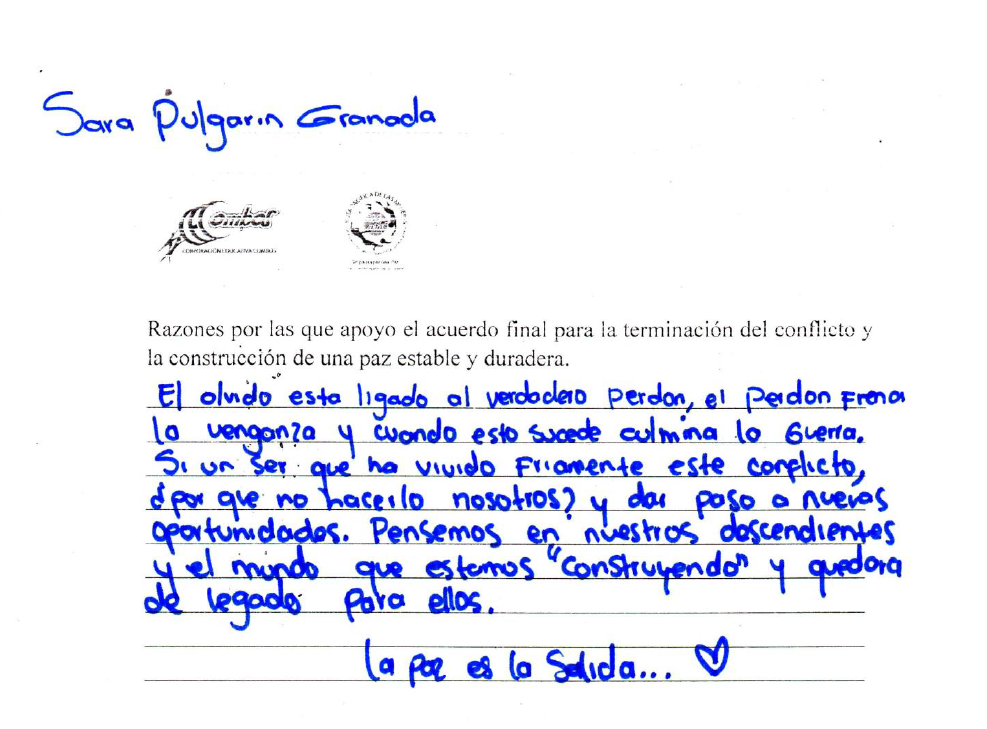 Sara Pulgarin Granada
Combos
CORPORACIÓN EDUCATIVA COMBOS
Razones por las que apoyo el acuerdo final para la terminación del conflicto y
la construcción de una paz estable y duradera.
El olvido esta ligado al verdadero perdon, el perdon Frena
la venganza y cuando esto sucede culmina la Guerra.
Si un ser que ha vivido Friamente este conflicto,
¿por que no hacerlo nosotros? y dar paso a nuevas
oportunidades. Pensemos en nuestros descendientes
y el mundo que estamos "construyendo" y quedara
de legado para ellos.
La paz es la Salida... ♡